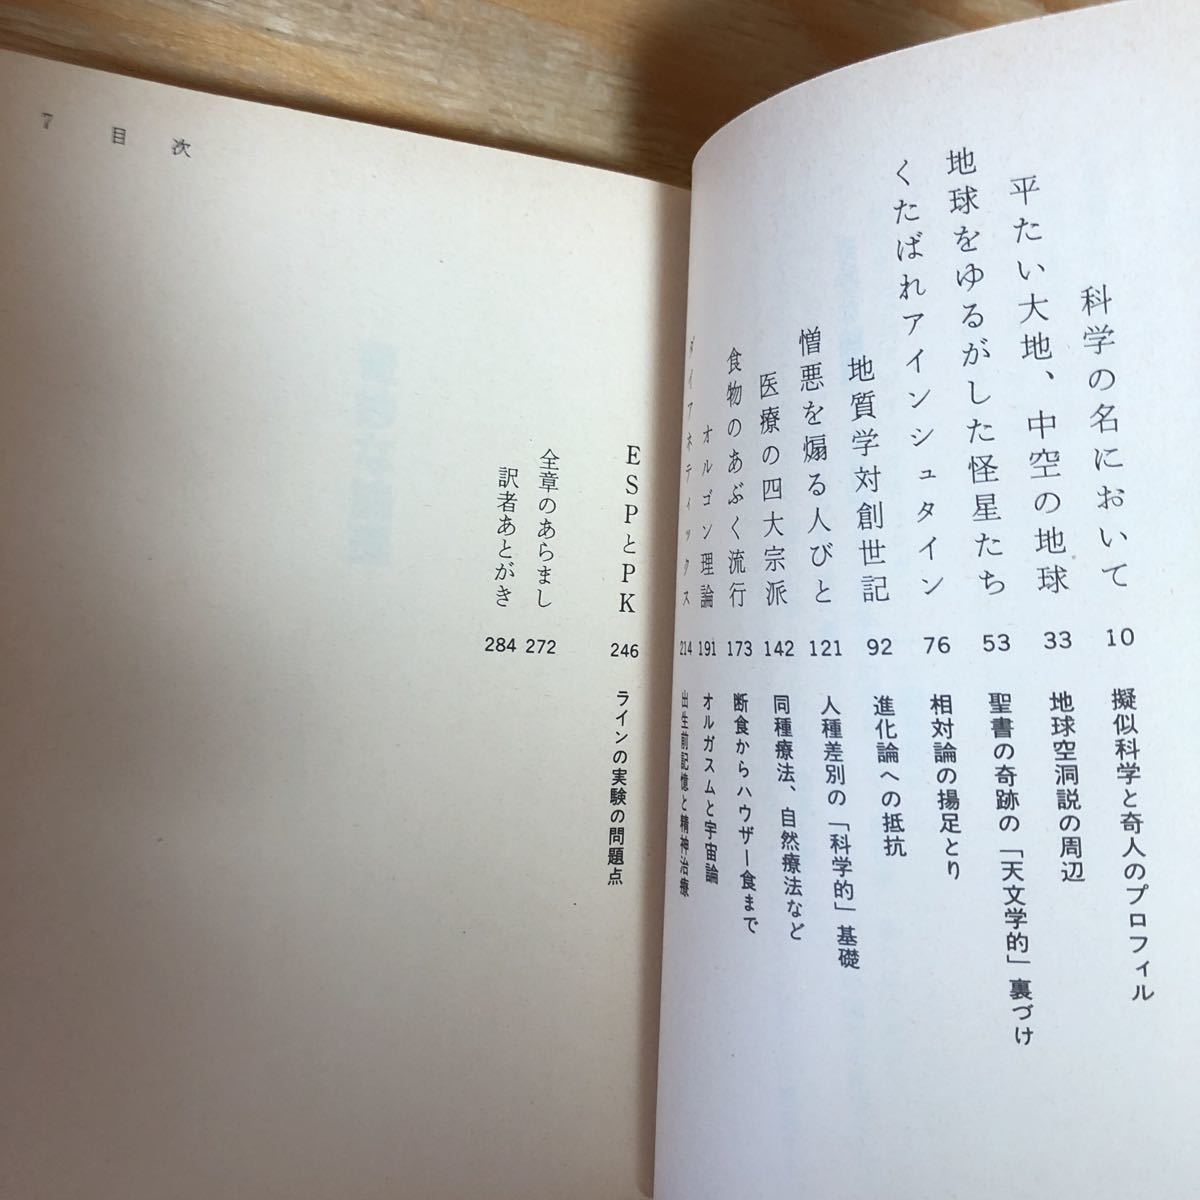 科学の名において 10 擬似科学と奇人のプロフィル
平たい大地、中空の地球 33 地球空洞説の周辺
地球をゆるがした怪星たち 53 聖書の奇跡の「天文学的」裏づけ
くたばれアインシュタイン 76 相対論の揚足とり
地質学対創世記 92 進化論への抵抗
憎悪を煽る人びと 121 人種差別の「科学的」基礎
医療の四大宗派 142 同種療法、自然療法など
食物のあぶく流行 173 断食からハウザー食まで
オルゴン理論 191 オルガスムと宇宙論
ダイアネティックス 214 出生前記憶と精神治療
ESPとPK 246 ラインの実験の問題点
全章のあらまし 272
訳者あとがき 284
7 目次